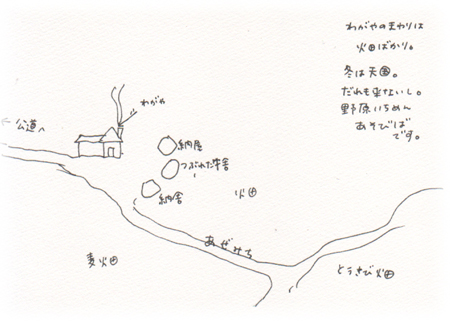 わがやのまわりは
畑ばかり。
冬は天国。
だれも来ないし。
野原いちめん
あそびば
です。
わがや
←公道へ
納屋
つぶれた牛舎
納舎
畑
あぜみち
麦畑
とうきび畑